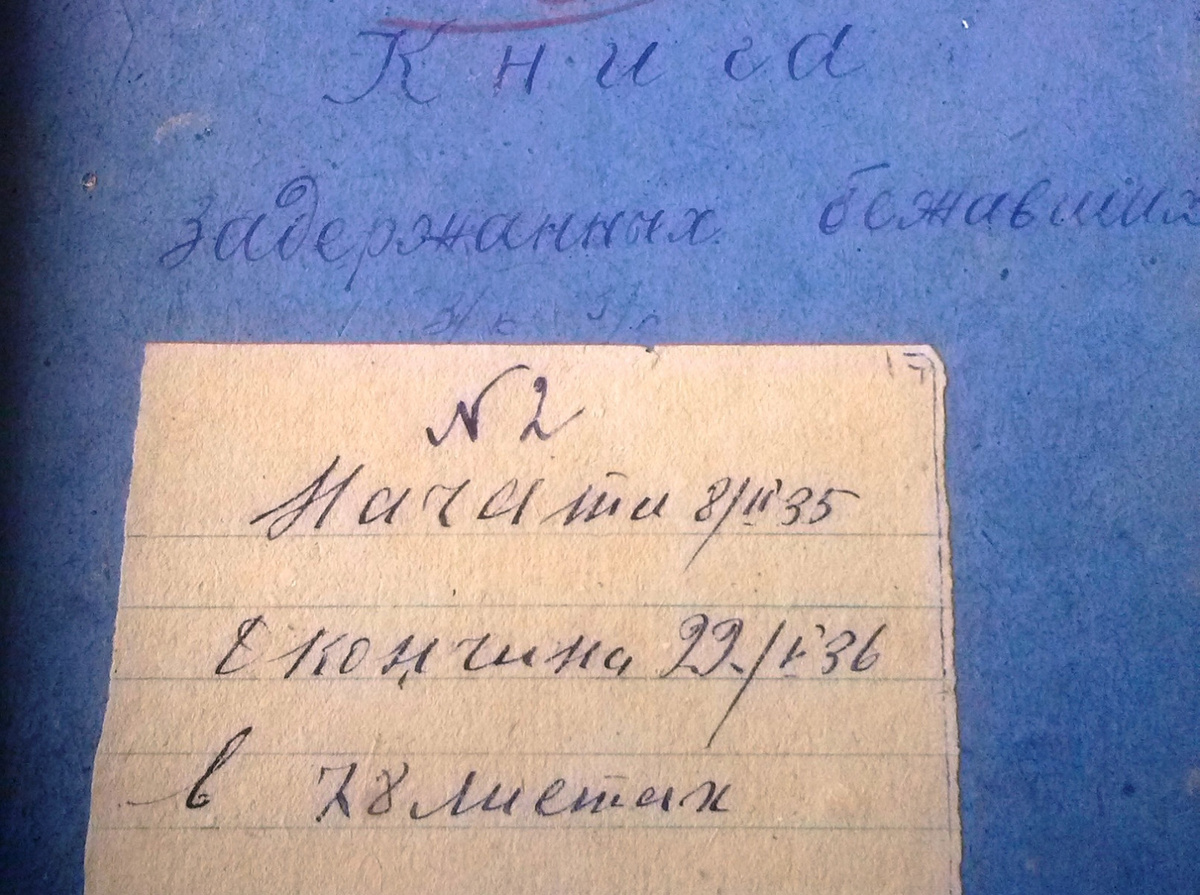 Книга
задержанных бежавших
з/к з/к
№ 2
Начата 8/II 35
Окончина 22/V 36
в 78 листах